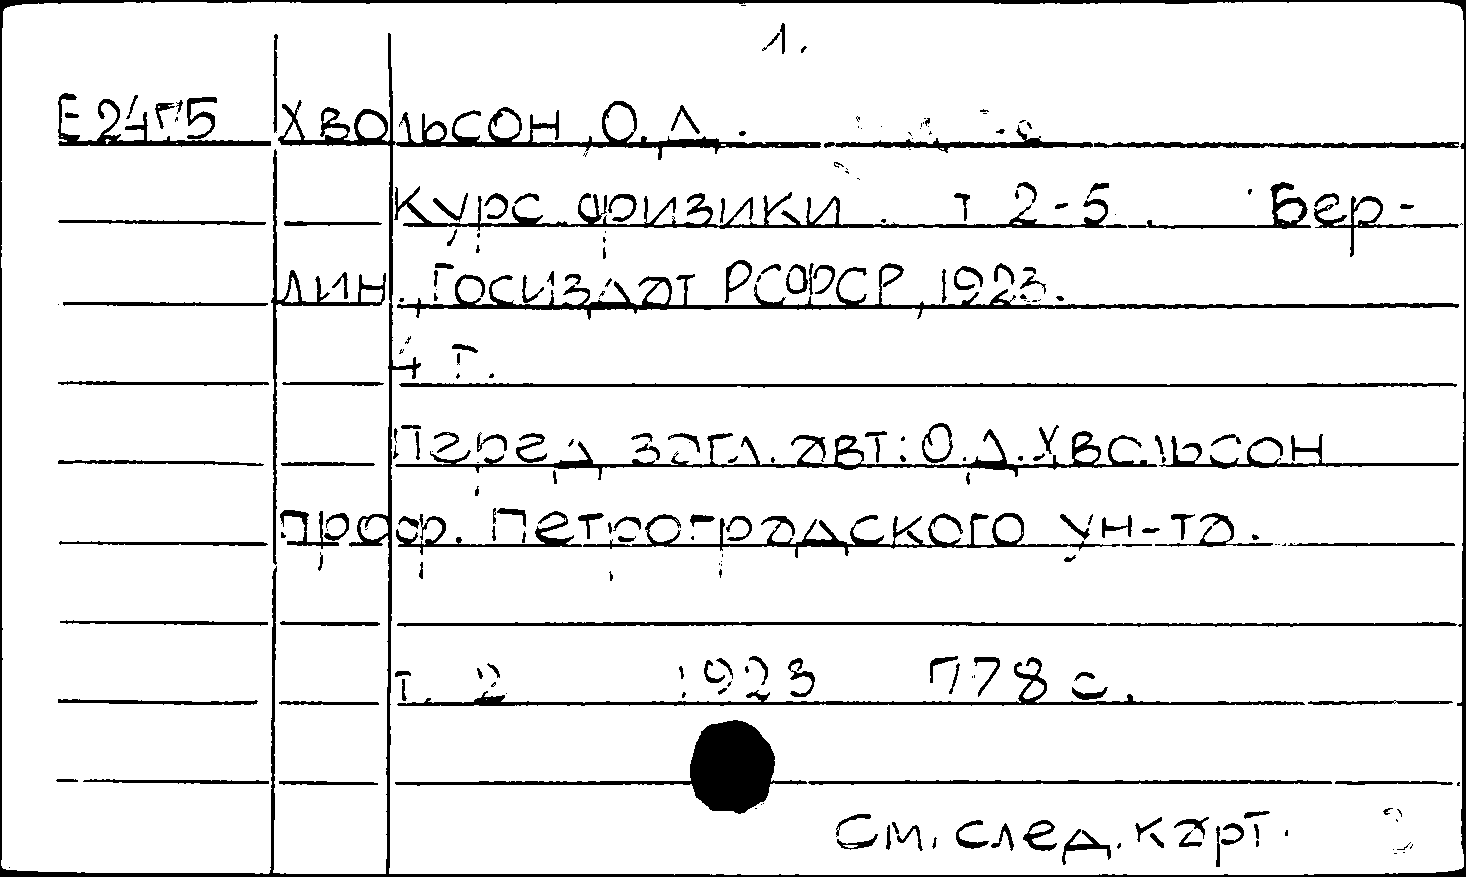 1.
Е2475 Хвольсон, О.Д.
Курс физики. т 2-5. Бер-
лин., Госиздат РСФСР, 1923.
4 т.
Перед загл. авт: О.Д.Хвольсон
проф. Петроградского ун-та.
т. 2 1923 778 с.
См. след. карт.